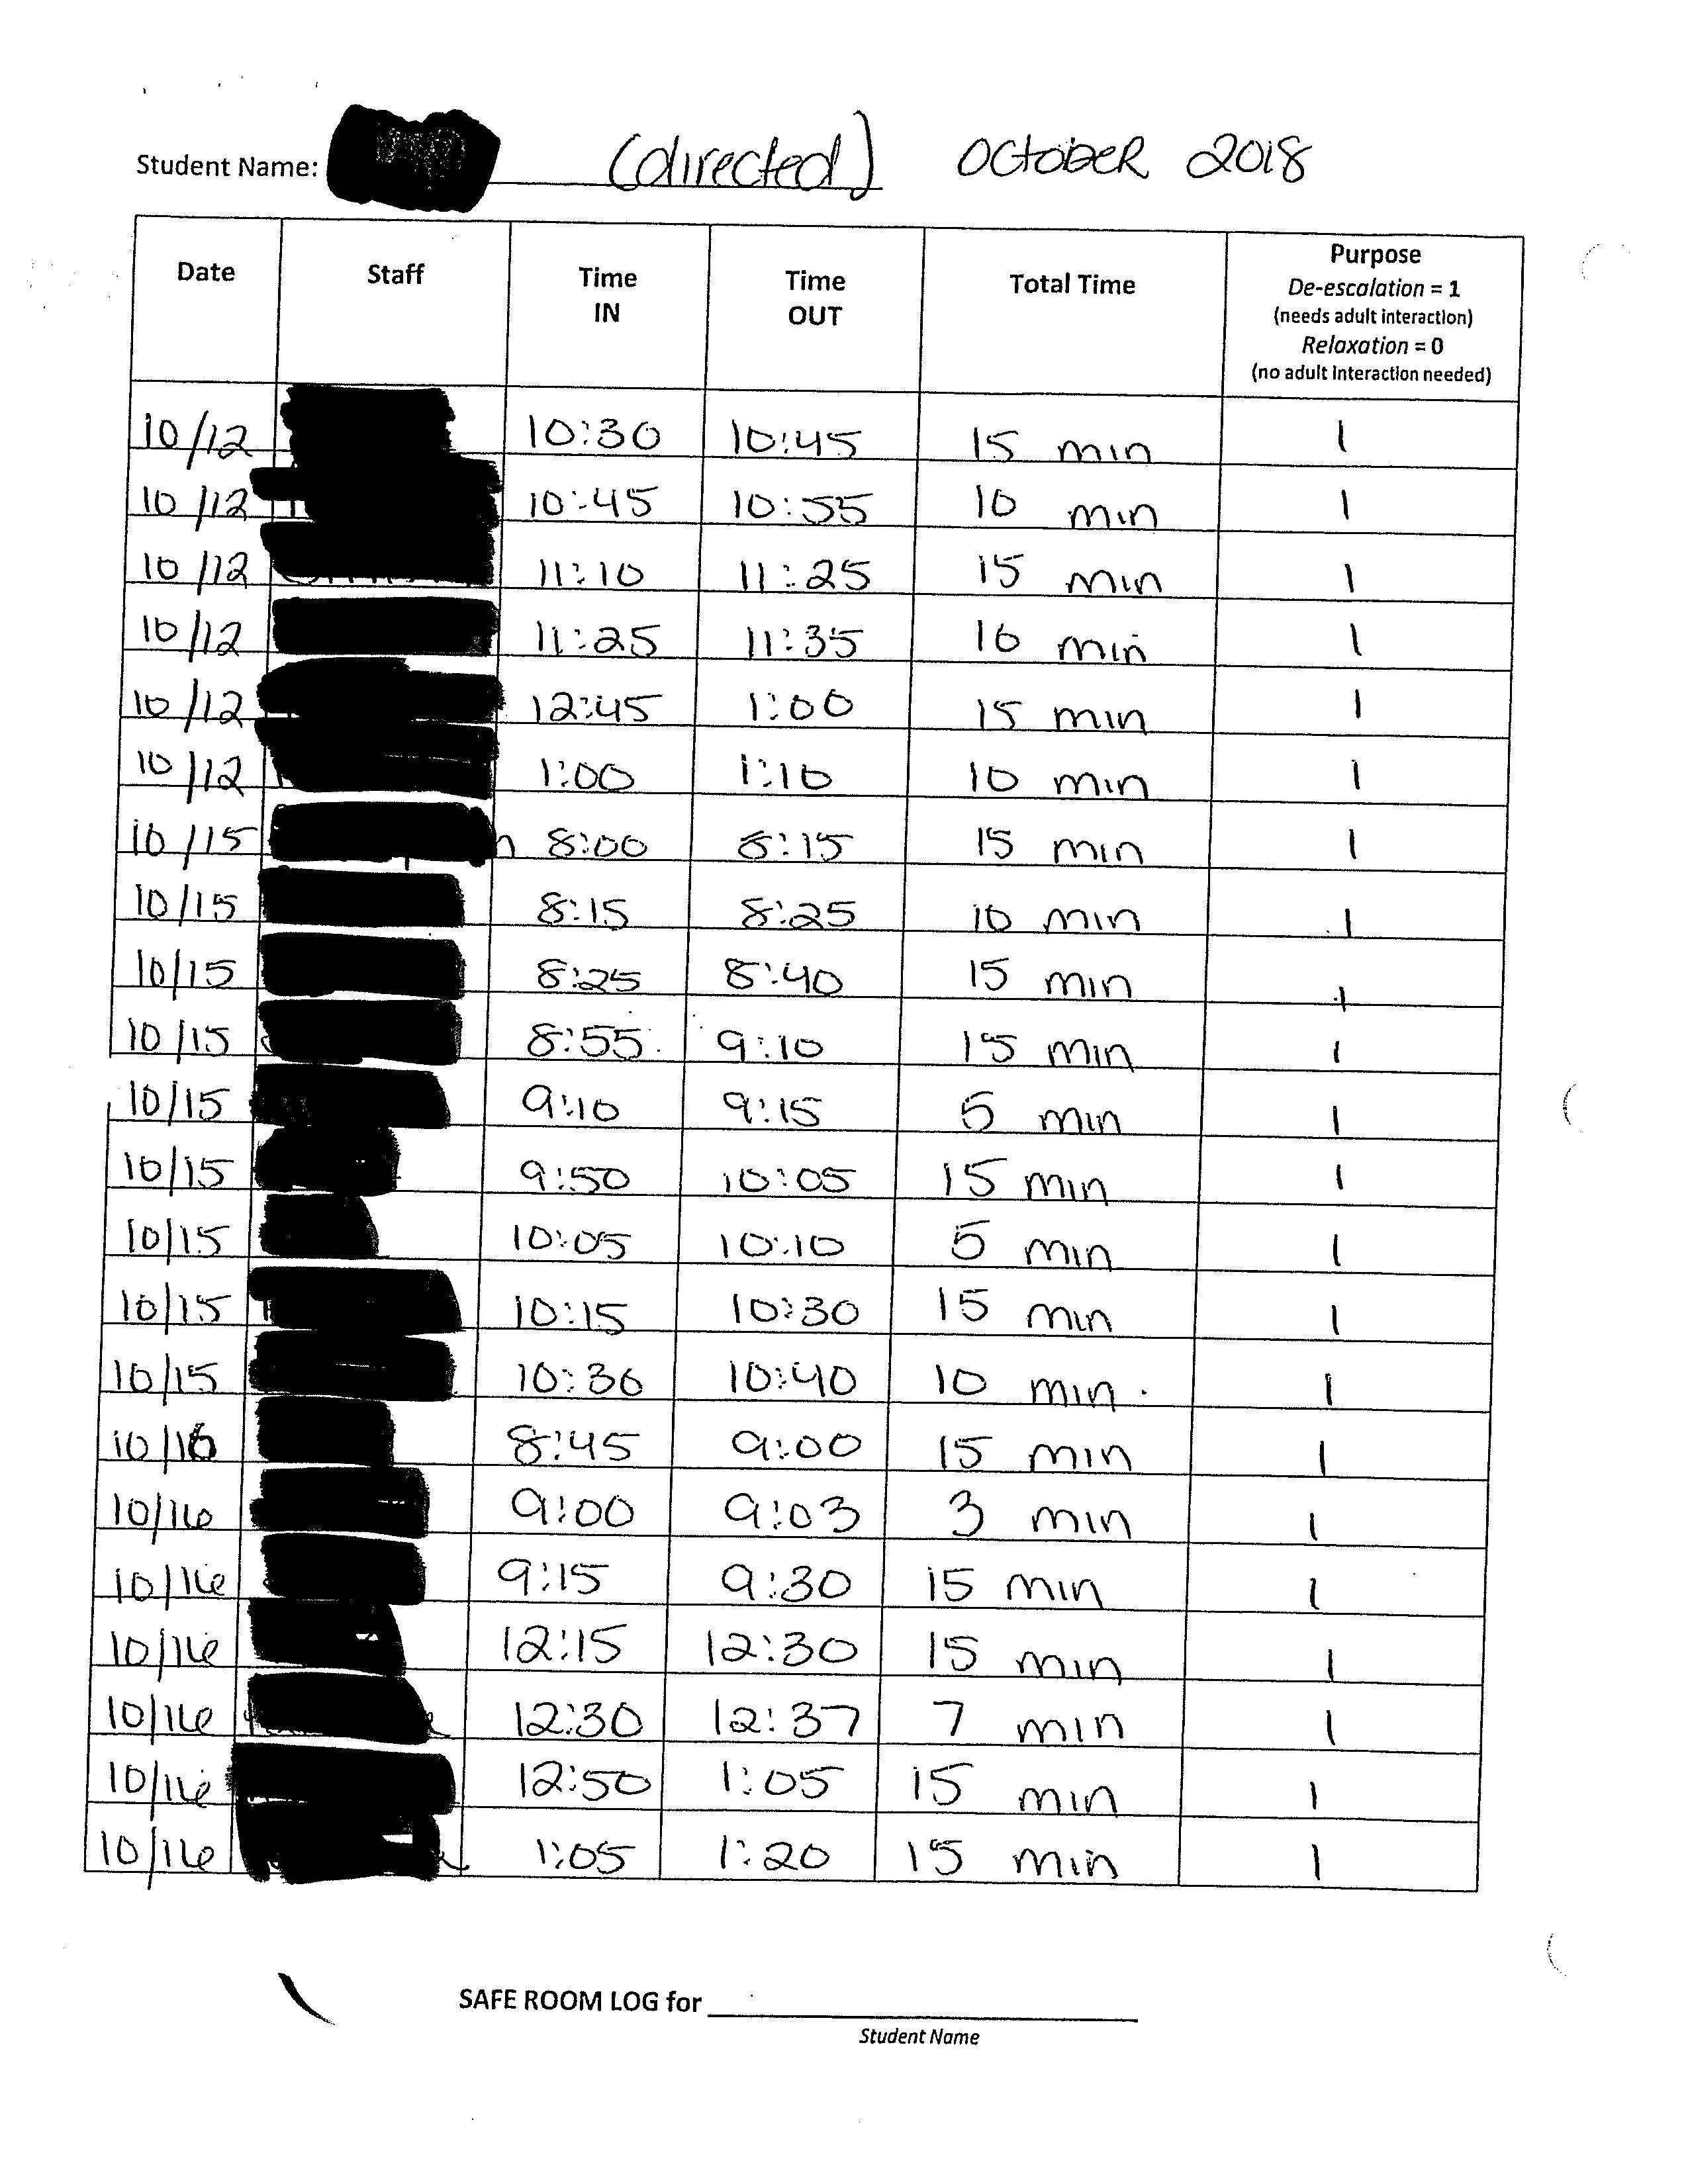 Student Name: (directed) OCTOBER 2018
Date Staff Time IN Time OUT Total Time Purpose
De-escalation = 1
(needs adult interaction)
Relaxation = 0
(no adult interaction needed)
10/12 10:30 10:45 15 min 1
10/12 10:45 10:55 10 min 1
10/12 11:10 11:25 15 min 1
10/12 11:25 11:35 10 min 1
10/12 12:45 1:00 15 min 1
10/12 1:00 1:10 10 min 1
10/15 8:00 8:15 15 min 1
10/15 8:15 8:25 10 min 1
10/15 8:25 8:40 15 min 1
10/15 8:55 9:10 15 min 1
10/15 9:10 9:15 5 min 1
10/15 9:50 10:05 15 min 1
10/15 10:05 10:10 5 min 1
10/15 10:15 10:30 15 min 1
10/15 10:30 10:40 10 min 1
10/16 8:45 9:00 15 min 1
10/16 9:00 9:03 3 min 1
10/16 9:15 9:30 15 min 1
10/16 12:15 12:30 15 min 1
10/16 12:30 12:37 7 min 1
10/16 12:50 1:05 15 min 1
10/16 1:05 1:20 15 min 1
SAFE ROOM LOG for
Student Name